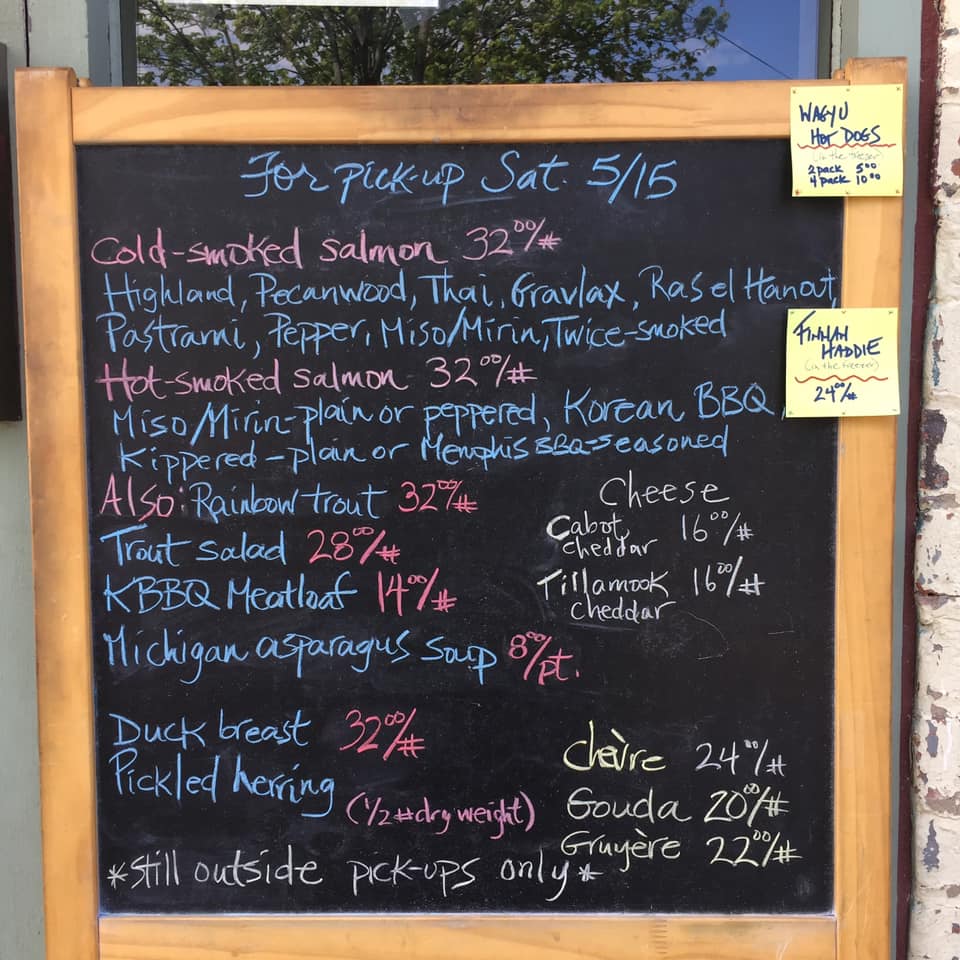 For pick-up Sat. 5/15
Cold-smoked salmon 32⁰⁰/#
Highland, Pecanwood, Thai, Gravlax, Ras el Hanout,
Pastrami, Pepper, Miso/Mirin, Twice-smoked
Hot-smoked salmon 32⁰⁰/#
Miso/Mirin-plain or peppered, Korean BBQ,
Kippered-plain or Memphis BBQ-seasoned
Also: Rainbow trout 32⁰⁰/#
Trout salad 28⁰⁰/#
KBBQ Meatloaf 14⁰⁰/#
Michigan asparagus soup 8⁰⁰/pt.
Duck breast 32⁰⁰/#
Pickled herring
(1/2 # dry weight)
Cheese
Cabot cheddar 16⁰⁰/#
Tillamook cheddar 16⁰⁰/#
Chèvre 24⁰⁰/#
Gouda 20⁰⁰/#
Gruyère 22⁰⁰/#
*still outside pick-ups only*
WAGYU
HOT DOGS
(in the freezer)
2 pack 5⁰⁰
4 pack 10⁰⁰
FINNAN
HADDIE
(in the freezer)
24⁰⁰/#